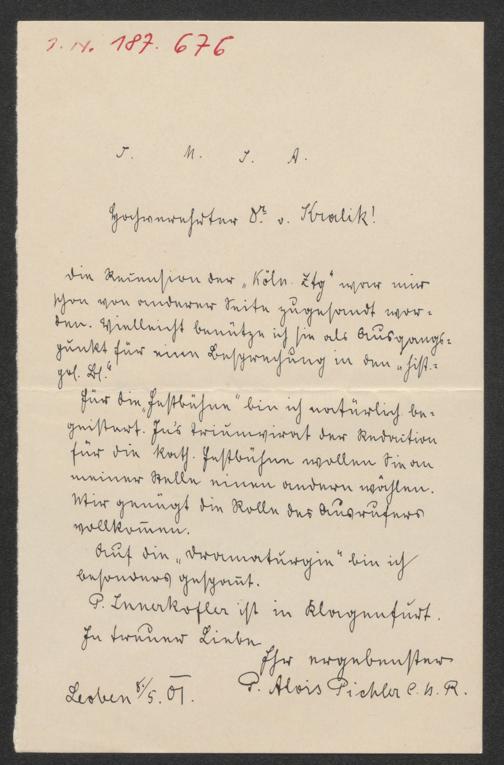 J. N. 187.676
J. M. J. A.
Hochverehrter Dr. v. Kralik!
Die Recension der „Köln. Ztg“ war mir
schon von anderer Seite zugesandt wor-
den. Vielleicht benütze ich sie als Ausgangs-
punkt für eine Besprechung in den „hist.-
pol. Bl.“
Für die „Festbühne“ bin ich natürlich be-
geistert. In's Triumvirat der Redaction
für die kath. Festbühne wollen Sie an
meiner Stelle einen andern wählen.
Mir genügt die Rolle des Ausrufers
vollkom̅en.
Auf die „Dramaturgie“ bin ich
besonders gespan̅t.
P. Innerkofler ist in Klagenfurt.
In treuer Liebe
Ihr ergebenster
P. Alois Pichler C. Ss. R.
Leoben 8./5. 01.